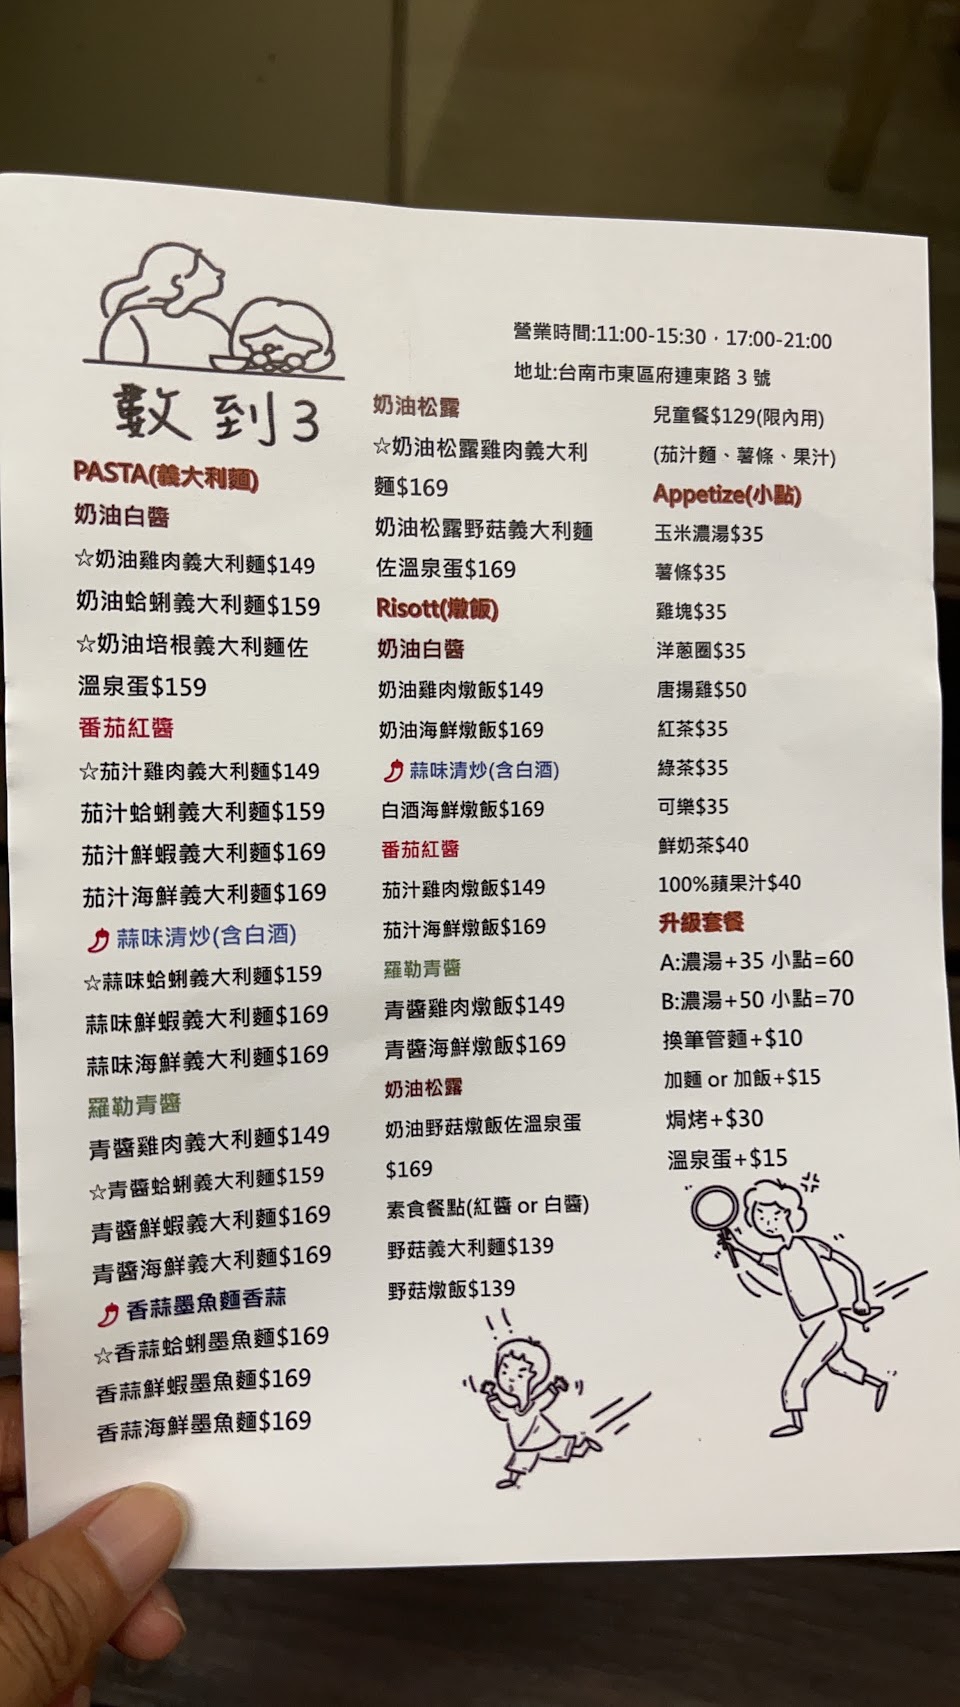 數到3
營業時間:11:00-15:30，17:00-21:00
地址:台南市東區府連東路 3 號
PASTA(義大利麵)
奶油白醬
☆奶油雞肉義大利麵$149
奶油蛤蜊義大利麵$159
☆奶油培根義大利麵佐
溫泉蛋$159
番茄紅醬
☆茄汁雞肉義大利麵$149
茄汁蛤蜊義大利麵$159
茄汁鮮蝦義大利麵$169
茄汁海鮮義大利麵$169
蒜味清炒(含白酒)
☆蒜味蛤蜊義大利麵$159
蒜味鮮蝦義大利麵$169
蒜味海鮮義大利麵$169
羅勒青醬
青醬雞肉義大利麵$149
☆青醬蛤蜊義大利麵$159
青醬鮮蝦義大利麵$169
青醬海鮮義大利麵$169
香蒜墨魚麵香蒜
☆香蒜蛤蜊墨魚麵$169
香蒜鮮蝦墨魚麵$169
香蒜海鮮墨魚麵$169
奶油松露
☆奶油松露雞肉義大利
麵$169
奶油松露野菇義大利麵
佐溫泉蛋$169
Risott(燉飯)
奶油白醬
奶油雞肉燉飯$149
奶油海鮮燉飯$169
蒜味清炒(含白酒)
白酒海鮮燉飯$169
番茄紅醬
茄汁雞肉燉飯$149
茄汁海鮮燉飯$169
羅勒青醬
青醬雞肉燉飯$149
青醬海鮮燉飯$169
奶油松露
奶油野菇燉飯佐溫泉蛋
$169
素食餐點(紅醬 or 白醬)
野菇義大利麵$139
野菇燉飯$139
兒童餐$129(限內用)
(茄汁麵、薯條、果汁)
Appetize(小點)
玉米濃湯$35
薯條$35
雞塊$35
洋蔥圈$35
唐揚雞$50
紅茶$35
綠茶$35
可樂$35
鮮奶茶$40
100%蘋果汁$40
升級套餐
A:濃湯+35 小點=60
B:濃湯+50 小點=70
換筆管麵+$10
加麵 or 加飯+$15
焗烤+$30
溫泉蛋+$15